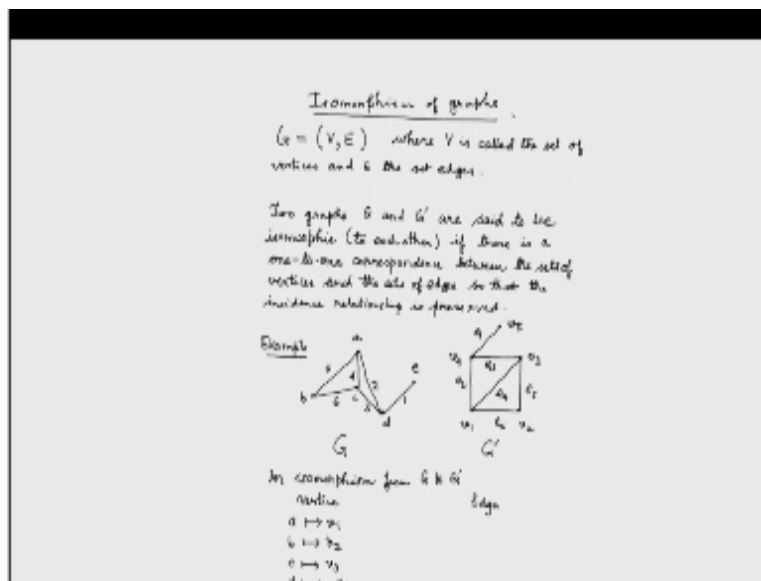 Isomorphism of graphs.
G = (V, E) where V is called the set of
vertices and E the set edges.
Two graphs G and G' are said to be
isomorphic (to each other) if there is a
one-to-one correspondence between the sets of
vertices and the sets of edges so that the
incidence relationship is preserved.
Example
a b c d e
5 4 6 1
G
v5 v4 v3 v1 v2
G'
An isomorphism from G to G'
vertices Edges
a ↦ v1
b ↦ v2
c ↦ v3